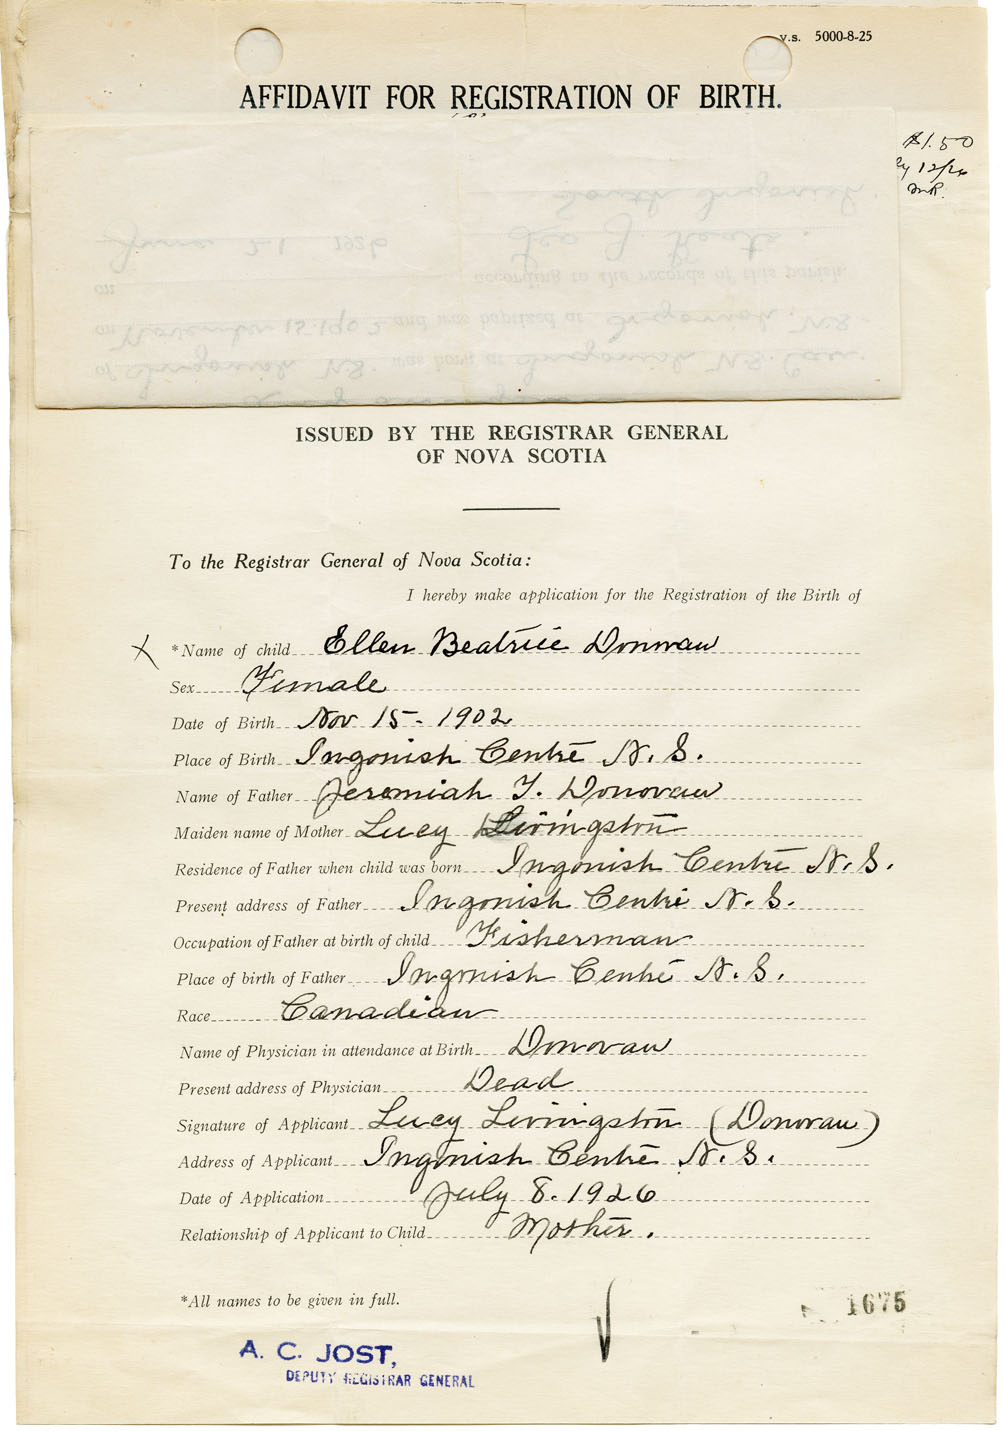 v.s. 5000-8-25
AFFIDAVIT FOR REGISTRATION OF BIRTH.
$1.50
12/26
South Ingonish
June 21 1926
according to the records of this parish.
on
on November 15. 1902 and was baptised at Ingonish, N.S.
of Ingonish N.S. was born at Ingonish N.S.
ISSUED BY THE REGISTRAR GENERAL
OF NOVA SCOTIA
To the Registrar General of Nova Scotia:
I hereby make application for the Registration of the Birth of
X *Name of child Ellen Beatrice Donovan
Sex Female
Date of Birth Nov 15 - 1902
Place of Birth Ingonish Centre N. S.
Name of Father Jeremiah T. Donovan
Maiden name of Mother Lucy Livingston
Residence of Father when child was born Ingonish Centre N. S.
Present address of Father Ingonish Centre N. S.
Occupation of Father at birth of child Fisherman
Place of birth of Father Ingonish Centre N. S.
Race Canadian
Name of Physician in attendance at Birth Donovan
Present address of Physician Dead
Signature of Applicant Lucy Livingston (Donovan)
Address of Applicant Ingonish Centre N. S.
Date of Application July 8. 1926
Relationship of Applicant to Child Mother.
*All names to be given in full.
1675
A. C. JOST,
DEPUTY REGISTRAR GENERAL